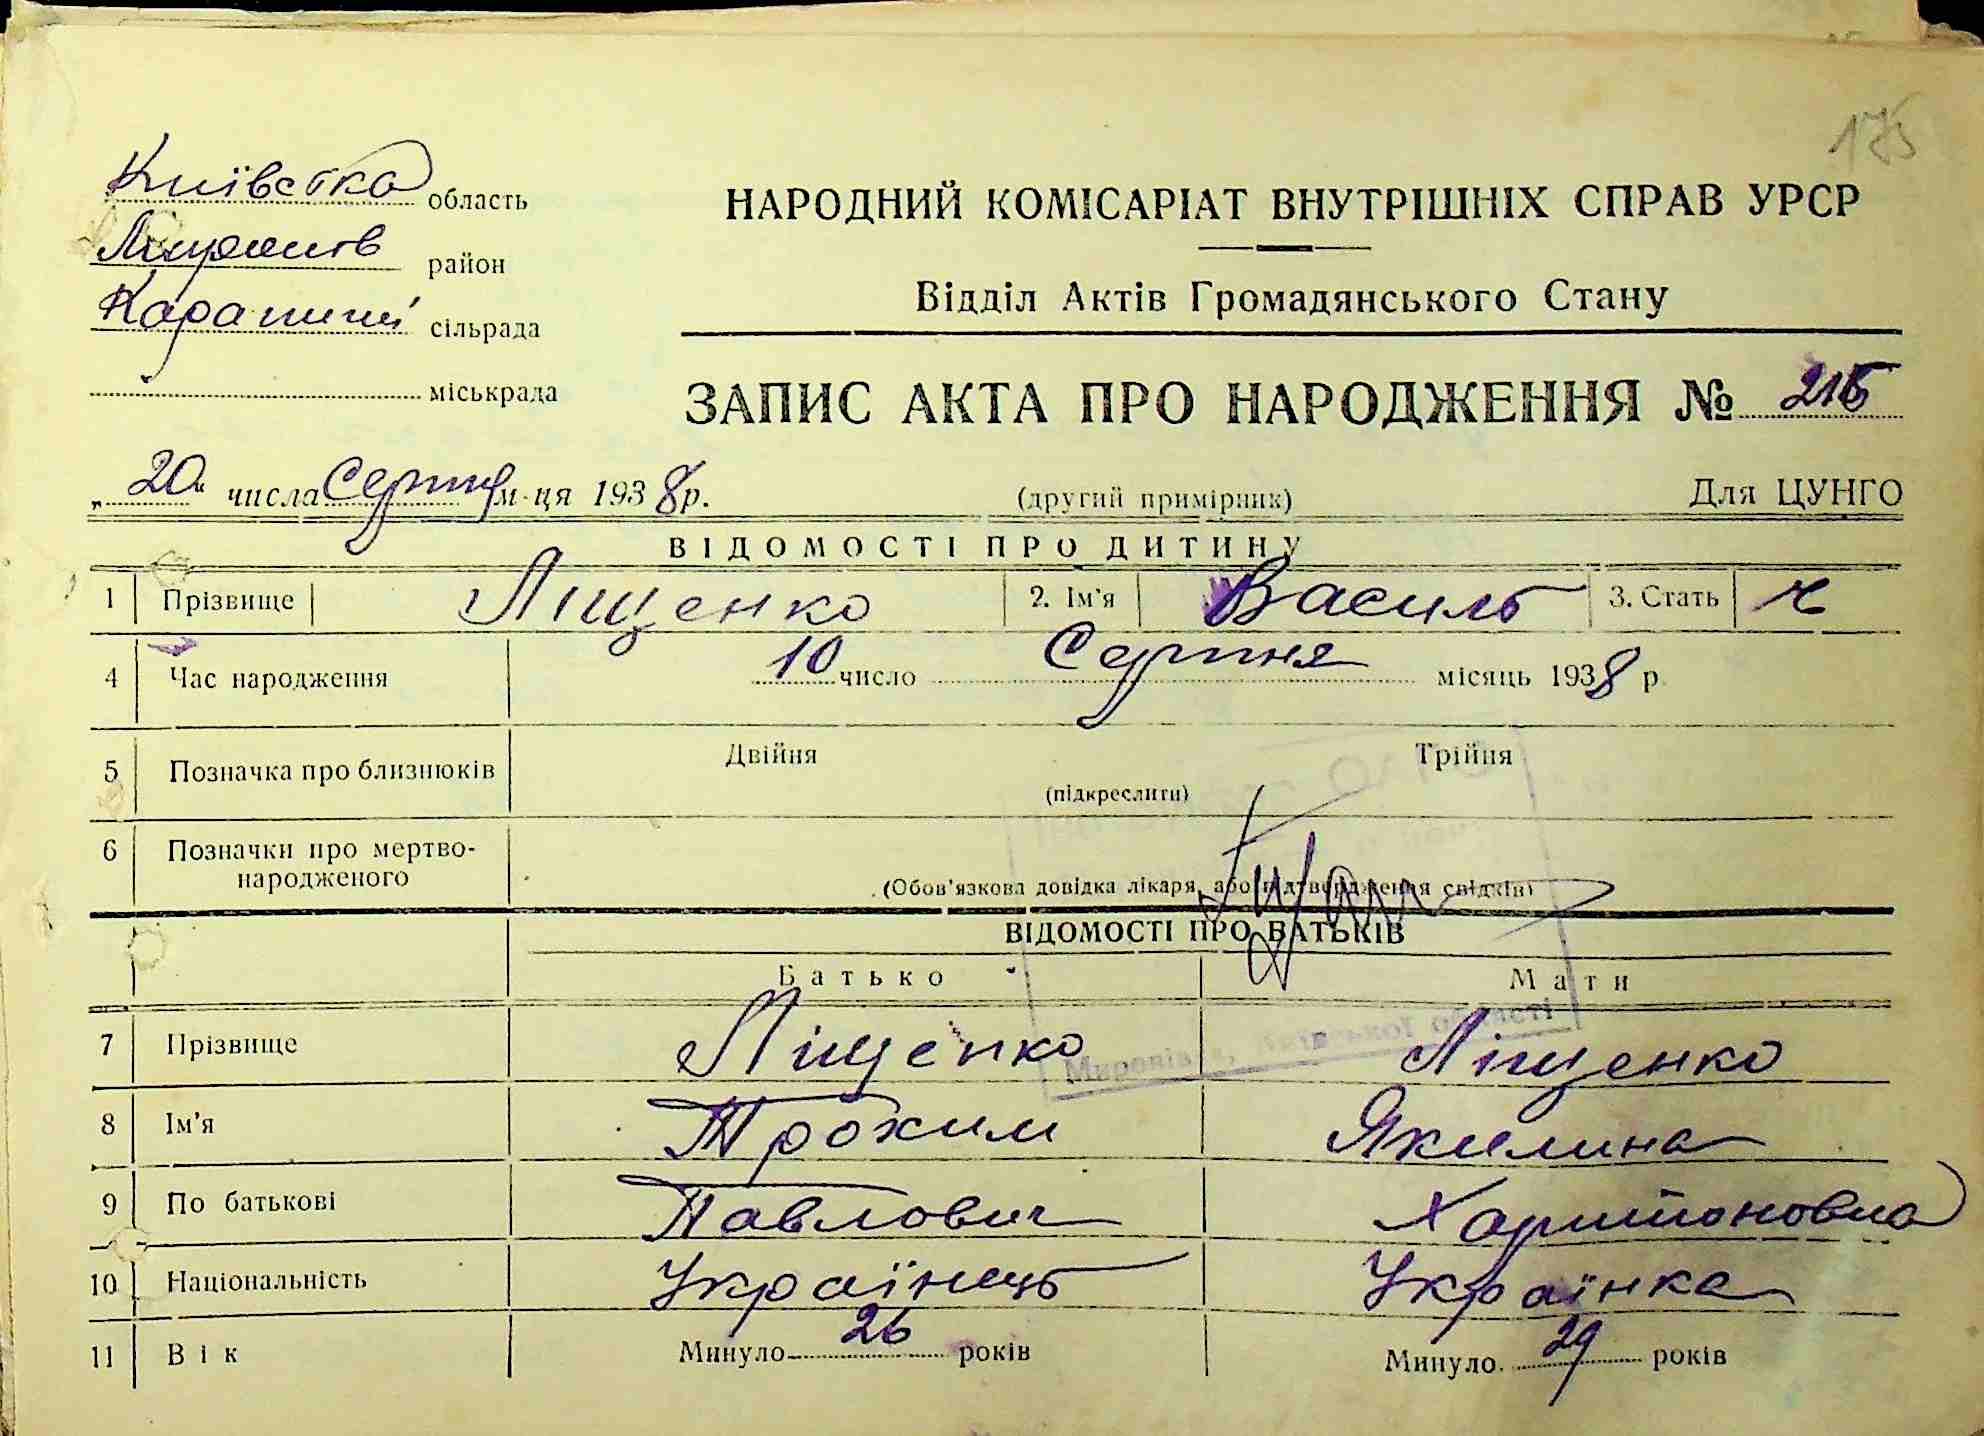 175
Київська область
район
Карапиші сільрада
міськрада
НАРОДНИЙ КОМІСАРІАТ ВНУТРІШНІХ СПРАВ УРСР
Відділ Актів Громадянського Стану
ЗАПИС АКТА ПРО НАРОДЖЕННЯ №
„20“ числа Серпня м-ця 1938 р. (другий примірник) Для ЦУНГО
ВІДОМОСТІ ПРО ДИТИНУ
1 Прізвище Ліщенко 2. Ім'я Василь 3. Стать ч
4 Час народження 10 число Серпня місяць 1938 р.
5 Позначка про близнюків Двійня Трійня
(підкреслити)
6 Позначки про мертво-
народженого (Обов'язкова довідка лікаря, або підтвердження свідків)
ВІДОМОСТІ ПРО БАТЬКІВ
Батько Мати
7 Прізвище Ліщенко Ліщенко
8 Ім'я Трохим Якилина
9 По батькові Павлович Харитоновна
10 Національність Українець Українка
11 Вік Минуло 26 років Минуло 29 років